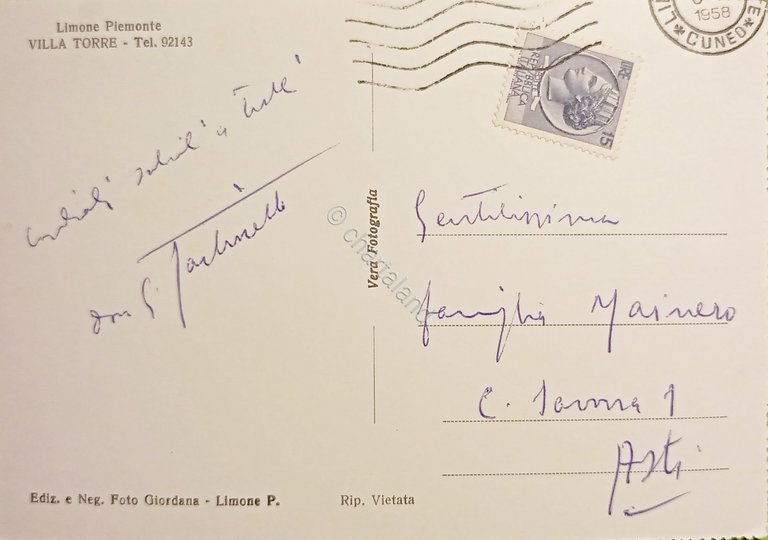 Limone Piemonte
VILLA TORRE - Tel. 92143
cordiali saluti a tutti
don G.
Vera Fotografia
© chartaland
1958
CUNEO
LIRE
REPUBBLICA
ITALIANA
15
Gentilissima
famiglia Mainero
C. Savona 1
Asti
Ediz. e Neg. Foto Giordana - Limone P.
Rip. Vietata